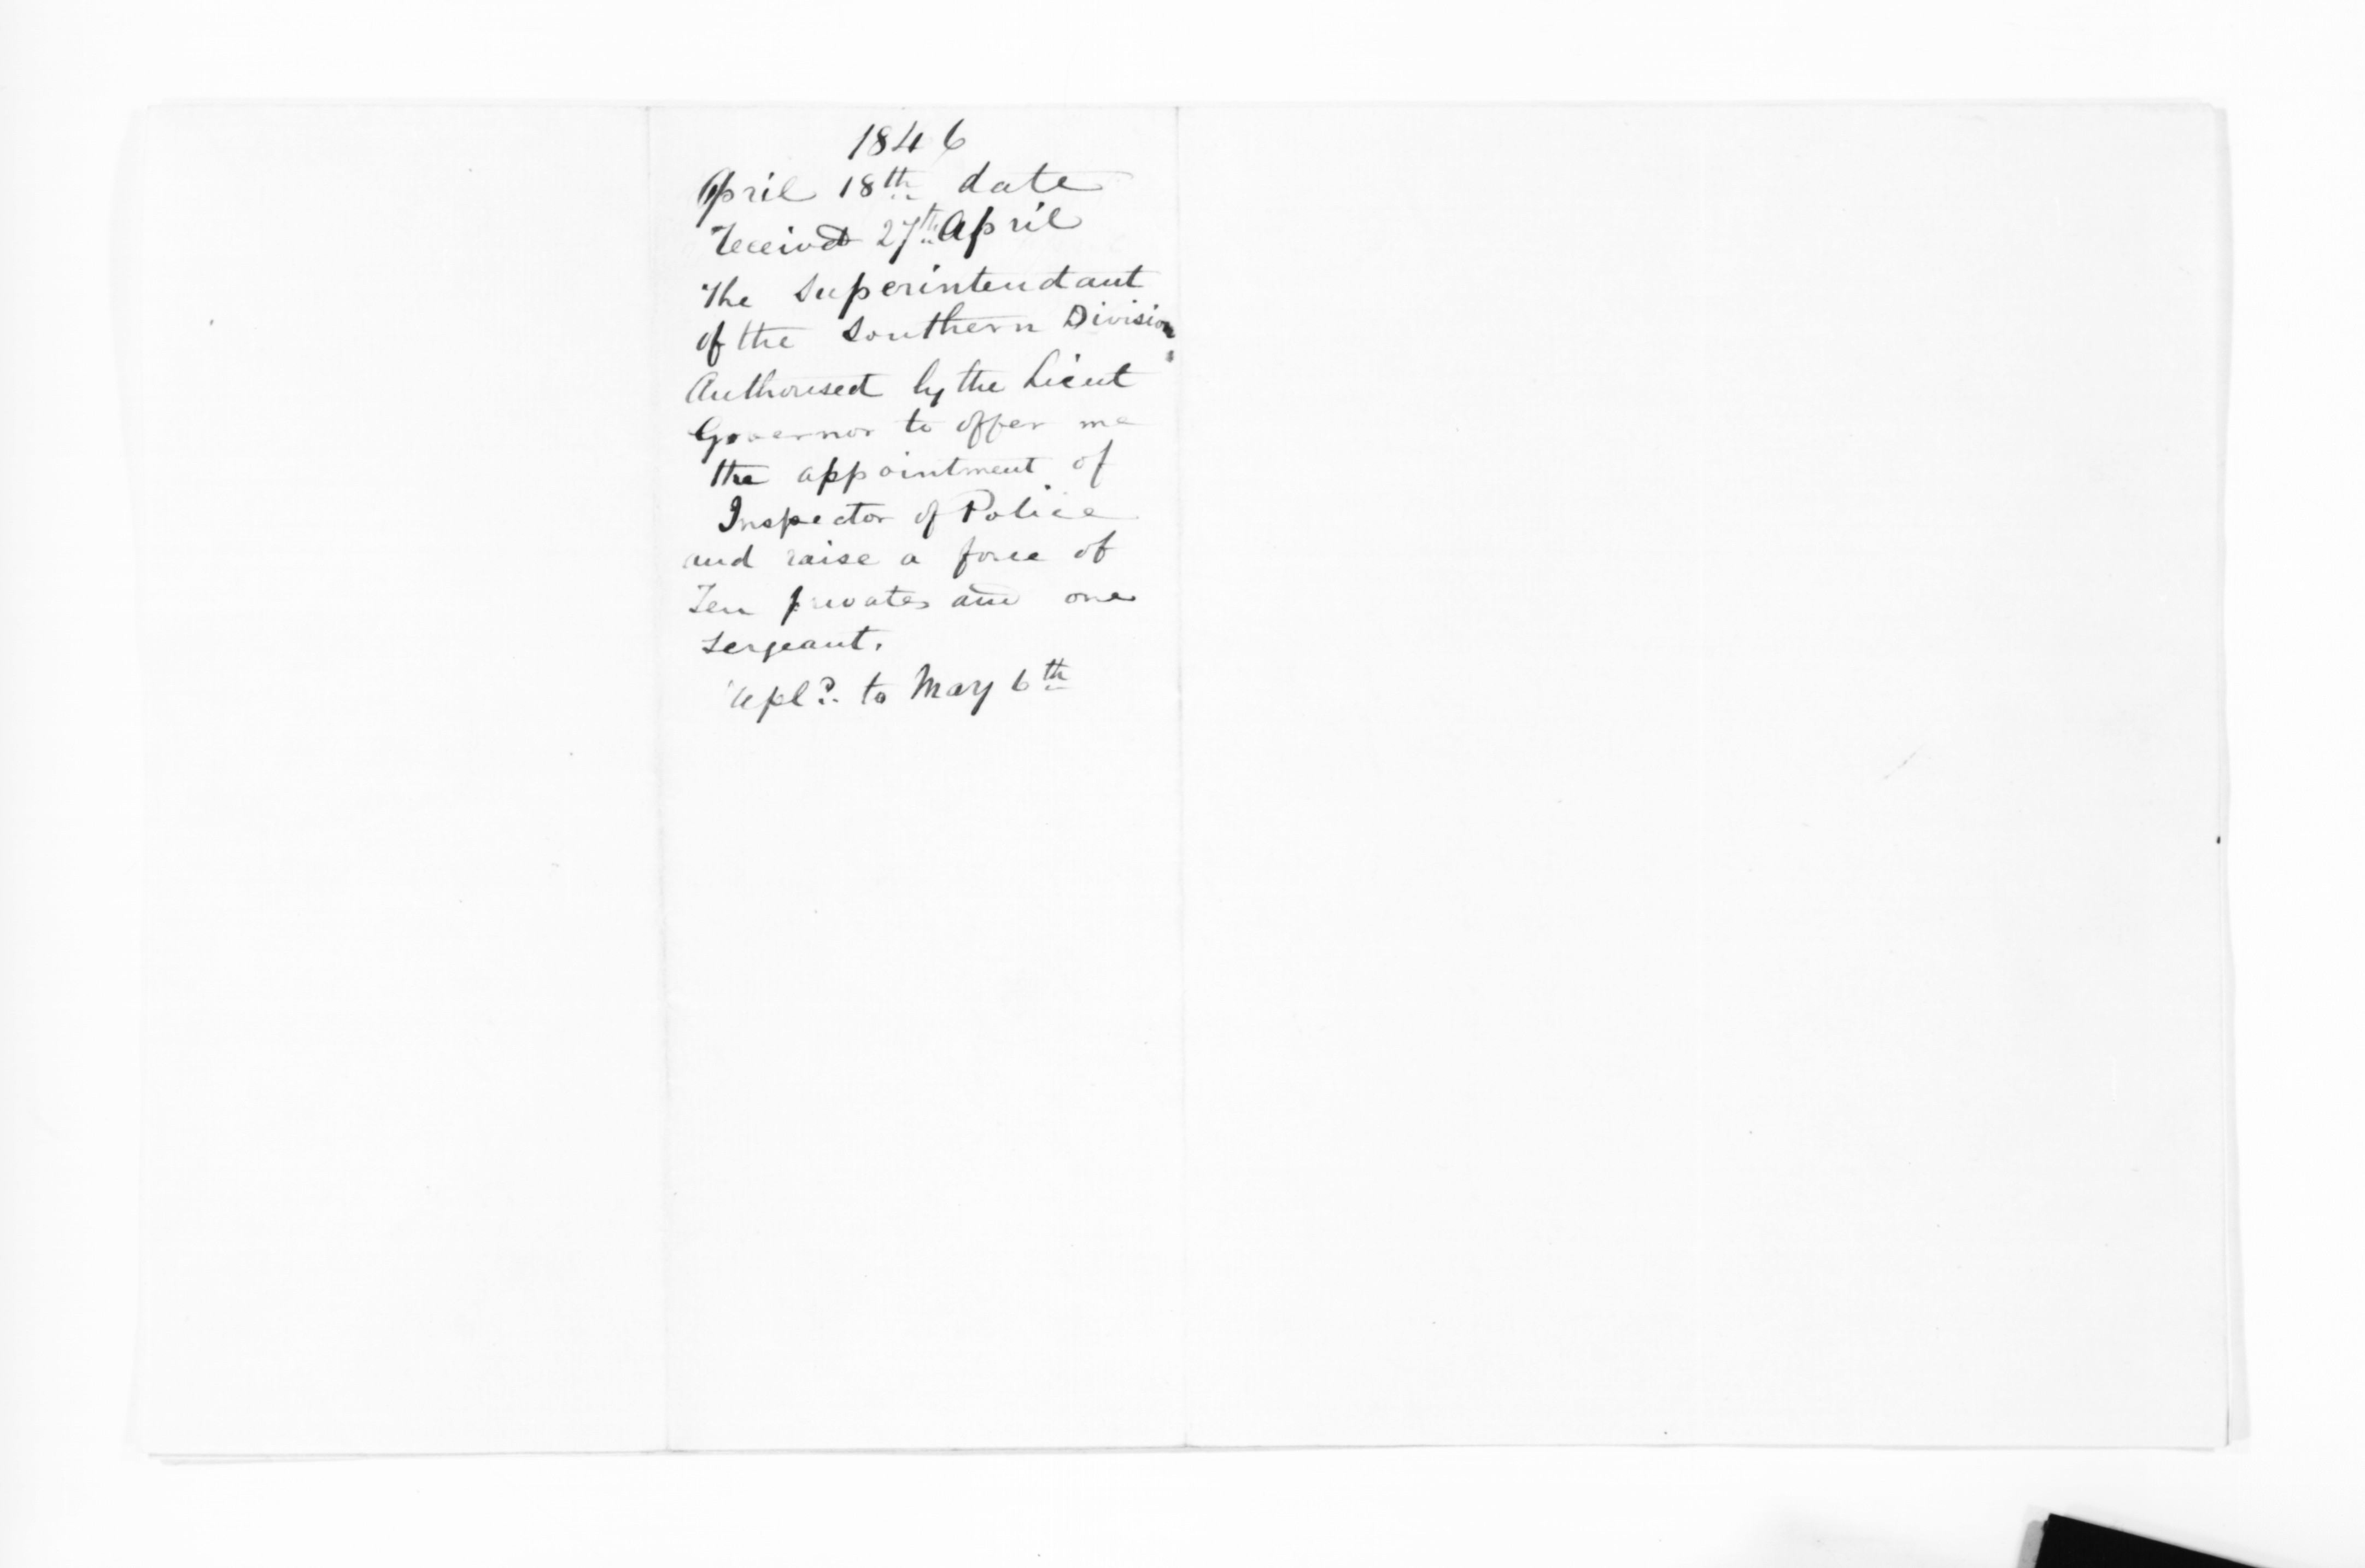 1846
April 18th date
received 27th April
The Superintendant
of the Southern Division
Authorised by the Lieut
Governor to offer me
the appointment of
Inspector of Police
and raise a force of
Ten privates and one
Sergeant.
to May 6th